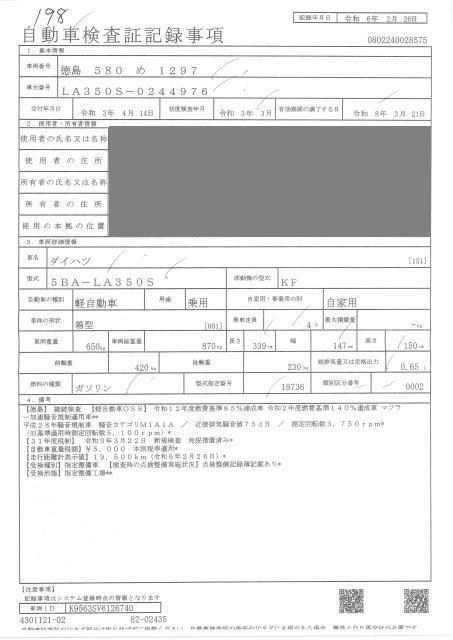 198
記録年月日 令和 6年 2月 26日
自動車検査証記録事項
0802240028575
1. 基本情報
車両番号 徳島 580 め 1297
車台番号 LA350S-0244976
交付年月日 令和 3年 4月 14日 初度検査年月 令和 3年 3月 有効期間の満了する日 令和 8年 3月 21日
2. 使用者・所有者情報
使用者の氏名又は名称
使用者の住所
所有者の氏名又は名称
所有者の住所
使用の本拠の位置
3. 車両詳細情報
車名 ダイハツ [151]
型式 5BA-LA350S 原動機の型式 KF
自動車の種別 軽自動車 用途 乗用 自家用・事業用の別 自家用
車体の形状 箱型 [001] 乗車定員 4人 最大積載量 -kg
車両重量 650kg 車両総重量 870kg 長さ 339cm 幅 147cm 高さ 150cm
前軸重 420kg 後軸重 230kg 総排気量又は定格出力 0.65 L
燃料の種類 ガソリン 型式指定番号 18736 類別区分番号 0002
4. 備考
【徳島】 継続検査 【軽自動車OSS】 令和12年度燃費基準85%達成車 令和2年度燃費基準140%達成車 マフラ
ー加速騒音規制適用車**
平成28年騒音規制車 騒音カテゴリM1A1A / 近接排気騒音値75dB / 測定回転数3,750rpm*
(旧基準適用時測定回転数5,100rpm)*
【31年度税制】 令和3年3月22日 新規検査 免税措置済み*
【自動車重量税額】¥5,000 本則税率適用*
【走行距離計表示値】19,500km(令和6年2月26日)*
【受検種別】指定整備車 【検査時の点検整備実施状況】点検整備記録簿記載あり*
【受検形態】指定整備工場**
【注意事項】
記録事項はシステム登録時点の情報となります
車両ID K9563SV6126740
4301121-02 82-02435